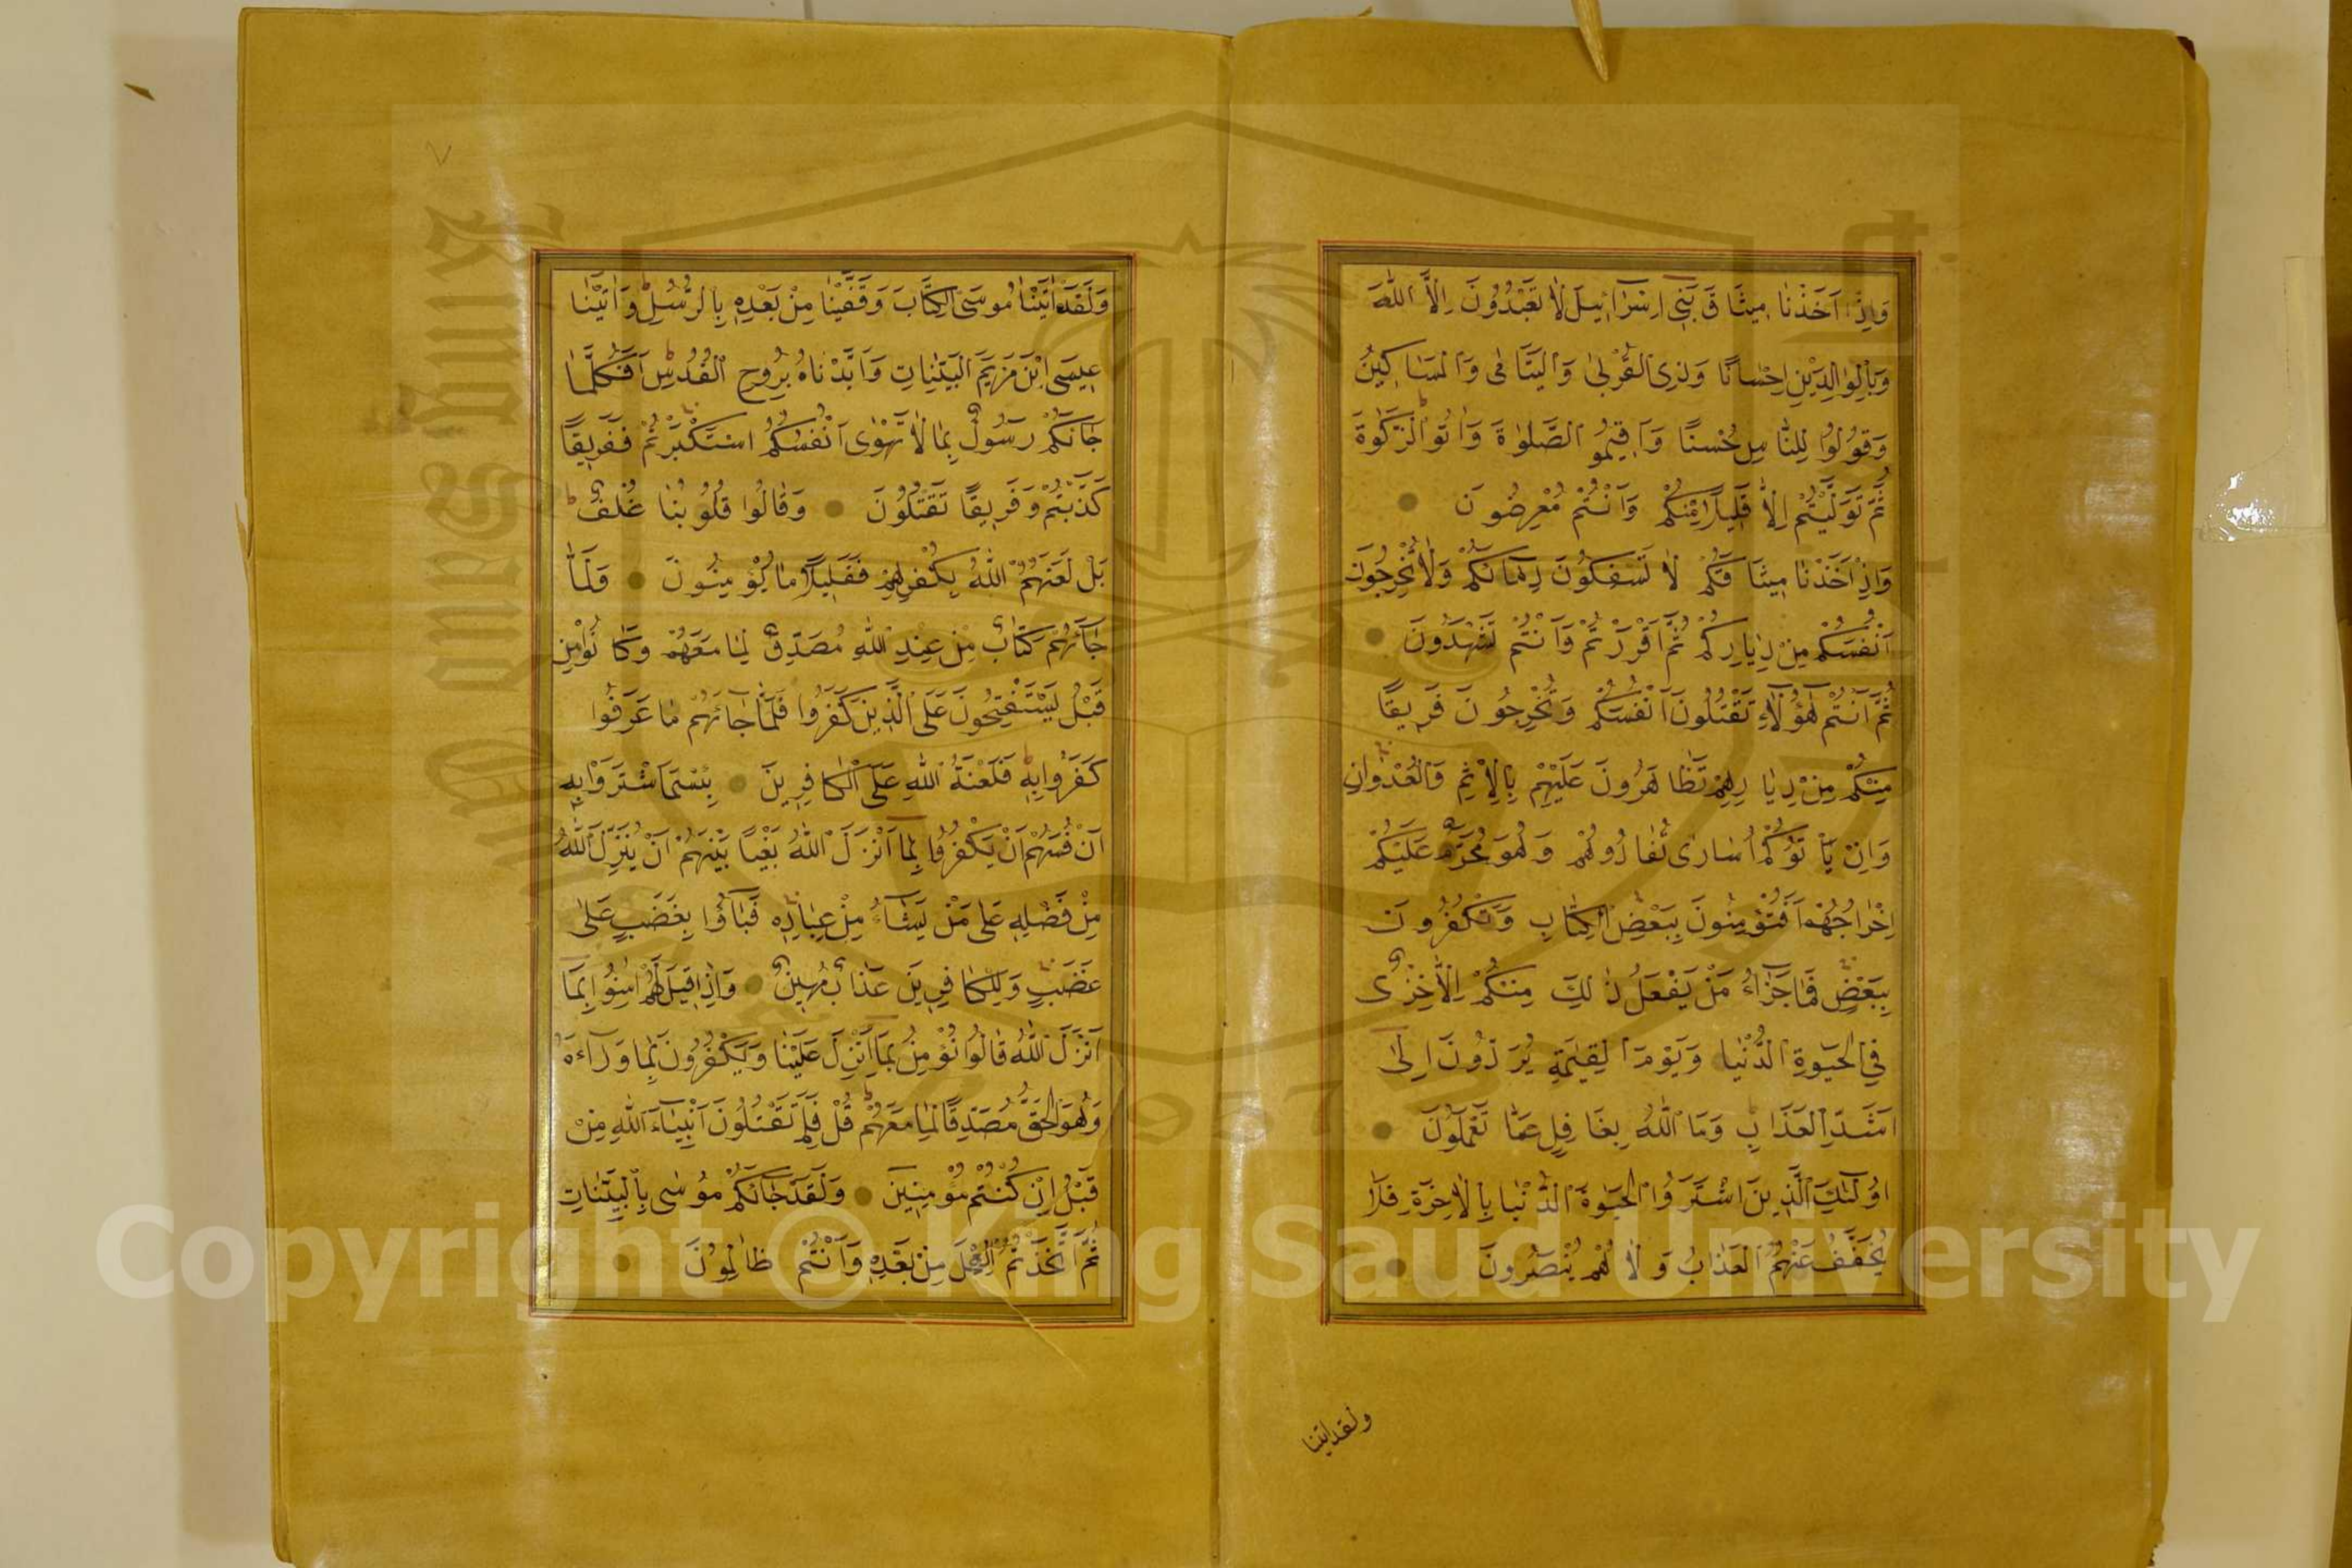 وَاِذْ اَخَذْنَا مِيثَاقَ بَنِي اِسْرَآئِيلَ لَا تَعْبُدُونَ اِلَّا اللّٰهَ
وَبِالْوَالِدَيْنِ اِحْسَانًا وَذِي الْقُرْبٰى وَالْيَتَامٰى وَالْمَسَاكِينَ
وَقُولُوا لِلنَّاسِ حُسْنًا وَاَقِيمُو الصَّلٰوةَ وَاٰتُو الزَّكٰوةَ
ثُمَّ تَوَلَّيْتُمْ اِلَّا قَلِيلًا مِنْكُمْ وَاَنْتُمْ مُعْرِضُونَ
وَاِذْ اَخَذْنَا مِيثَاقَكُمْ لَا تَسْفِكُونَ دِمَائَكُمْ وَلَا تُخْرِجُونَ
اَنْفُسَكُمْ مِنْ دِيَارِكُمْ ثُمَّ اَقْرَرْتُمْ وَاَنْتُمْ تَشْهَدُونَ
ثُمَّ اَنْتُمْ هٰٓؤُلَاءِ تَقْتُلُونَ اَنْفُسَكُمْ وَتُخْرِجُونَ فَرِيقًا
مِنْكُمْ مِنْ دِيَارِهِمْ تَظَاهَرُونَ عَلَيْهِمْ بِالْاِثْمِ وَالْعُدْوَانِ
وَاِنْ يَاْتُوكُمْ اُسَارٰى تُفَادُوهُمْ وَهُوَ مُحَرَّمٌ عَلَيْكُمْ
اِخْرَاجُهُمْ اَفَتُؤْمِنُونَ بِبَعْضِ الْكِتَابِ وَتَكْفُرُونَ
بِبَعْضٍ فَمَا جَزَآءُ مَنْ يَفْعَلُ ذٰلِكَ مِنْكُمْ اِلَّا خِزْىٌ
فِي الْحَيٰوةِ الدُّنْيَا وَيَوْمَ الْقِيٰمَةِ يُرَدُّونَ اِلٰى
اَشَدِّ الْعَذَابِ وَمَا اللّٰهُ بِغَافِلٍ عَمَّا تَعْمَلُونَ
اُولٰٓئِكَ الَّذِينَ اشْتَرَوُا الْحَيٰوةَ الدُّنْيَا بِالْاٰخِرَةِ فَلَا
يُخَفَّفُ عَنْهُمُ الْعَذَابُ وَلَا هُمْ يُنْصَرُونَ
ولقد اتينا
٧
وَلَقَدْ اٰتَيْنَا مُوسَى الْكِتَابَ وَقَفَّيْنَا مِنْ بَعْدِهِ بِالرُّسُلِ وَاٰتَيْنَا
عِيسَى ابْنَ مَرْيَمَ الْبَيِّنَاتِ وَاَيَّدْنَاهُ بِرُوحِ الْقُدُسِ اَفَكُلَّمَا
جَائَكُمْ رَسُولٌ بِمَا لَا تَهْوٰى اَنْفُسُكُمُ اسْتَكْبَرْتُمْ فَفَرِيقًا
كَذَّبْتُمْ وَفَرِيقًا تَقْتُلُونَ وَقَالُوا قُلُوبُنَا غُلْفٌ
بَلْ لَعَنَهُمُ اللّٰهُ بِكُفْرِهِمْ فَقَلِيلًا مَا يُؤْمِنُونَ وَلَمَّا
جَآئَهُمْ كِتَابٌ مِنْ عِنْدِ اللّٰهِ مُصَدِّقٌ لِمَا مَعَهُمْ وَكَانُوا مِنْ
قَبْلُ يَسْتَفْتِحُونَ عَلَى الَّذِينَ كَفَرُوا فَلَمَّا جَائَهُمْ مَا عَرَفُوا
كَفَرُوا بِهِ فَلَعْنَةُ اللّٰهِ عَلَى الْكَافِرِينَ بِئْسَمَا اشْتَرَوْا بِهِ
اَنْفُسَهُمْ اَنْ يَكْفُرُوا بِمَا اَنْزَلَ اللّٰهُ بَغْيًا بَيْنَهُمْ اَنْ يُنَزِّلَ اللّٰهُ
مِنْ فَضْلِهِ عَلٰى مَنْ يَشَآءُ مِنْ عِبَادِهِ فَبَآؤُا بِغَضَبٍ عَلٰى
غَضَبٍ وَلِلْكَافِرِينَ عَذَابٌ مُهِينٌ وَاِذَا قِيلَ لَهُمْ اٰمِنُوا بِمَا
اَنْزَلَ اللّٰهُ قَالُوا نُؤْمِنُ بِمَا اُنْزِلَ عَلَيْنَا وَيَكْفُرُونَ بِمَا وَرَآءَهُ
وَهُوَ الْحَقُّ مُصَدِّقًا لِمَا مَعَهُمْ قُلْ فَلِمَ تَقْتُلُونَ اَنْبِيَآءَ اللّٰهِ مِنْ
قَبْلُ اِنْ كُنْتُمْ مُؤْمِنِينَ وَلَقَدْ جَائَكُمْ مُوسٰى بِالْبَيِّنَاتِ
ثُمَّ اتَّخَذْتُمُ الْعِجْلَ مِنْ بَعْدِهِ وَاَنْتُمْ ظَالِمُونَ
King Saud University
1957
Copyright © King Saud University